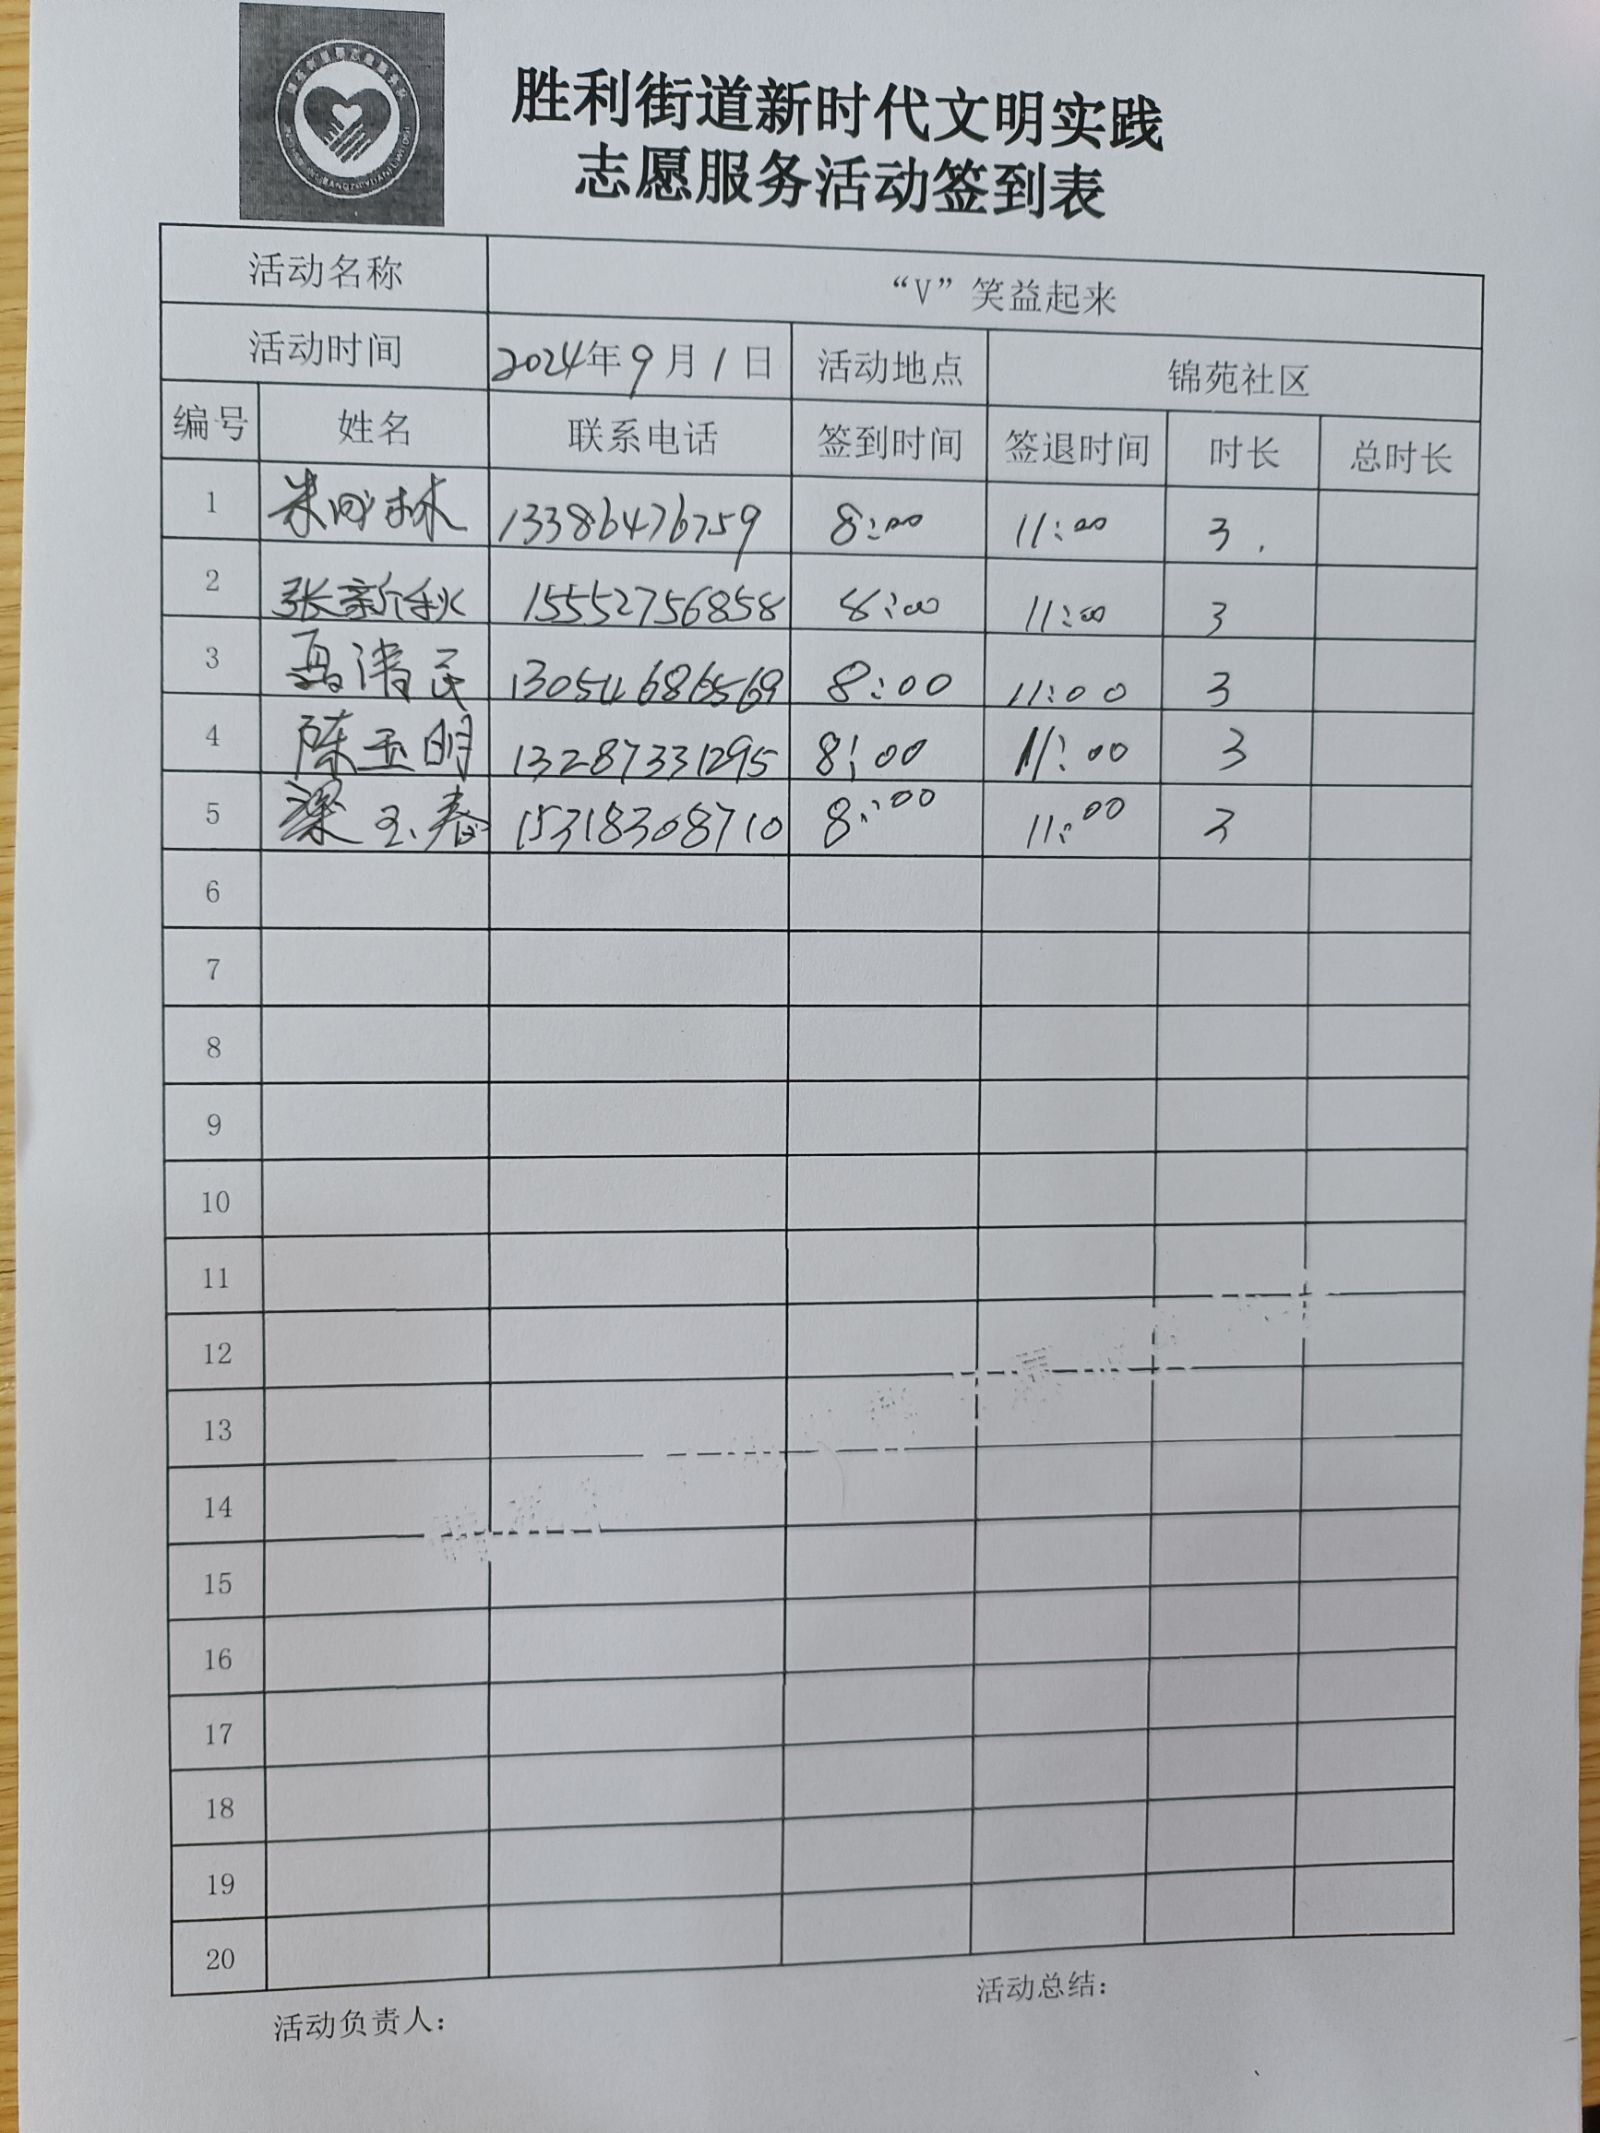 胜利街道新时代文明实践
志愿服务活动签到表
活动名称 “V”笑益起来
活动时间 2024年9月1日 活动地点 锦苑社区
编号 姓名 联系电话 签到时间 签退时间 时长 总时长
1 林 13386476759 8:00 11:00 3
2 张新秋 15552756858 8:00 11:00 3
3 聂清民 13054686569 8:00 11:00 3
4 陈玉明 13287331295 8:00 11:00 3
5 梁玉春 15318308710 8:00 11:00 3
6
7
8
9
10
11
12
13
14
15
16
17
18
19
20
活动负责人： 活动总结：